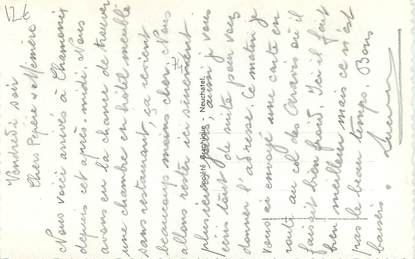 Vendredi soir
Chers Pépère et Mémère
Nous voici arrivés à Chamonix
depuis cet après-midi. Nous
avons eu la chance de trouver
une chambre en hôtel meublé
sans restaurant, ça revient
beaucoup moins cher. Nous
allons rester ici sûrement
plusieurs jours, aussi je vous
écris tout de suite pour vous
donner l'adresse. Ce matin je
vous ai envoyé une carte en
route au col des Aravis où il
faisait bien froid. Ici il fait
bien meilleur mais ce n'est
pas le beau temps. Bons
baisers.
Neuchatel